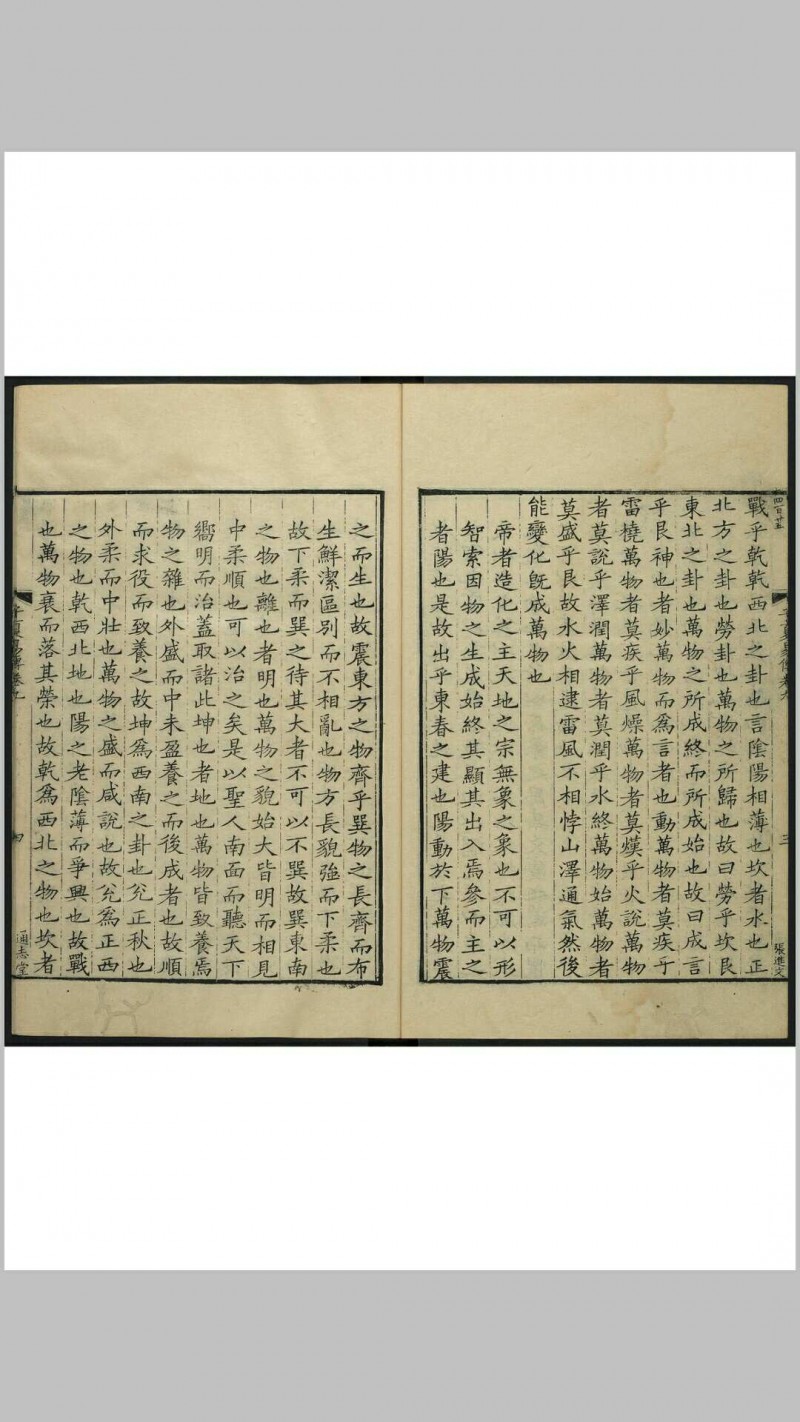 四百廿五
戰乎乾乾西北之卦也言陰陽相薄也坎者水也正
北方之卦也勞卦也萬物之所歸也故曰勞乎坎艮
東北之卦也萬物之所成終而所成始也故曰成言
乎艮神也者妙萬物而爲言者也動萬物者莫疾乎
雷橈萬物者莫疾乎風燥萬物者莫熯乎火說萬物
者莫說乎澤潤萬物者莫潤乎水終萬物始萬物者
莫盛乎艮故水火相逮雷風不相悖山澤通氣然後
能變化旣成萬物也
帝者造化之主天地之宗無象之象也不可以形
智索因物之生成始終其顯其出入焉參而主之
者陽也是故出乎東春之建也陽動於下萬物震
三
張進文
之而生也故震東方之物齊乎巽物之長齊而布
生鮮潔區別而不相亂也物方長貌強而下柔也
故下柔而巽之待其大者不可以不巽故巽東南
之物也離也者明也萬物之貌始大皆明而相見
中柔順也可以治之矣是以聖人南面而聽天下
嚮明而治蓋取諸此坤也者地也萬物皆致養焉
物之雜也外盛而中未盈養之而後成者也故順
而求役而致養之故坤爲西南之卦也兊正秋也
外柔而中壯也萬物之盛而咸說也故兊爲正西
之物也乾西北地也陽之老陰薄而爭興也故戰
也萬物衰而落其榮也故乾爲西北之物也坎者
子夏易傳卷九
四
通志堂